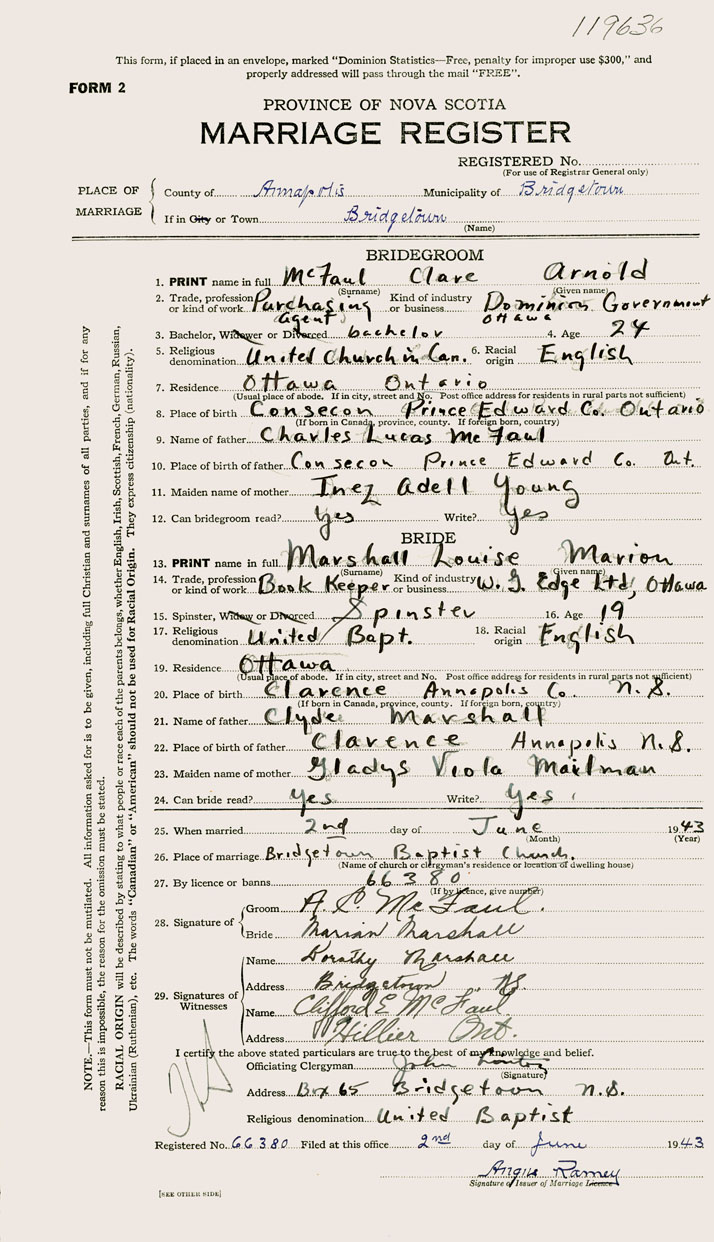 119636
This form, if placed in an envelope, marked “Dominion Statistics—Free, penalty for improper use $300,” and
properly addressed will pass through the mail “FREE”.
FORM 2
PROVINCE OF NOVA SCOTIA
MARRIAGE REGISTER
REGISTERED No.
(For use of Registrar General only)
PLACE OF MARRIAGE
County of Annapolis Municipality of Bridgetown
If in City or Town Bridgetown
(Name)
BRIDEGROOM
1. PRINT name in full McFaul Clare Arnold
(Surname) (Given name)
2. Trade, profession or kind of work Purchasing Agent Kind of industry or business Dominion Government Ottawa
3. Bachelor, Widower or Divorced bachelor 4. Age 24
5. Religious denomination United Church in Can. 6. Racial origin English
7. Residence Ottawa Ontario
(Usual place of abode. If in city, street and No. Post office address for residents in rural parts not sufficient)
8. Place of birth Consecon Prince Edward Co. Ontario
(If born in Canada, province, county. If foreign born, country)
9. Name of father Charles Lucas McFaul
10. Place of birth of father Consecon Prince Edward Co. Ont.
11. Maiden name of mother Inez Adell Young
12. Can bridegroom read? Yes Write? Yes
BRIDE
13. PRINT name in full Marshall Louise Marion
(Surname) (Given name)
14. Trade, profession or kind of work Book Keeper Kind of industry or business W. G. Edge Ltd, Ottawa
15. Spinster, Widow or Divorced Spinster 16. Age 19
17. Religious denomination United Bapt. 18. Racial origin English
19. Residence Ottawa
(Usual place of abode. If in city, street and No. Post office address for residents in rural parts not sufficient)
20. Place of birth Clarence Annapolis Co. N.S.
(If born in Canada, province, county. If foreign born, country)
21. Name of father Clyde Marshall
22. Place of birth of father Clarence Annapolis N.S.
23. Maiden name of mother Gladys Viola Mailman
24. Can bride read? Yes Write? Yes
25. When married 2nd day of June 1943
(Month) (Year)
26. Place of marriage Bridgetown Baptist Church.
(Name of church or clergyman's residence or location of dwelling house)
27. By licence or banns 66380
(If by licence, give number)
28. Signature of
Groom A. C. McFaul.
Bride Marian Marshall
29. Signatures of Witnesses
Name Dorothy Marshall
Address Bridgetown N.S.
Name Clifford E McFaul
Address Hillier Ont.
I certify the above stated particulars are true to the best of my knowledge and belief.
Officiating Clergyman John
(Signature)
Address Box 65 Bridgetown N.S.
Religious denomination United Baptist
Registered No. 66380 Filed at this office 2nd day of June 1943
Angus Ramey
Signature of Issuer of Marriage Licence
[SEE OTHER SIDE]
NOTE.—This form must not be mutilated. All information asked for is to be given, including full Christian and surnames of all parties, and if for any
reason this is impossible, the reason for the omission must be stated.
RACIAL ORIGIN will be described by stating to what people or race each of the parents belongs, whether English, Irish, Scottish, French, German, Russian,
Ukrainian (Ruthenian), etc. The words “Canadian” or “American” should not be used for Racial Origin. They express citizenship (nationality).